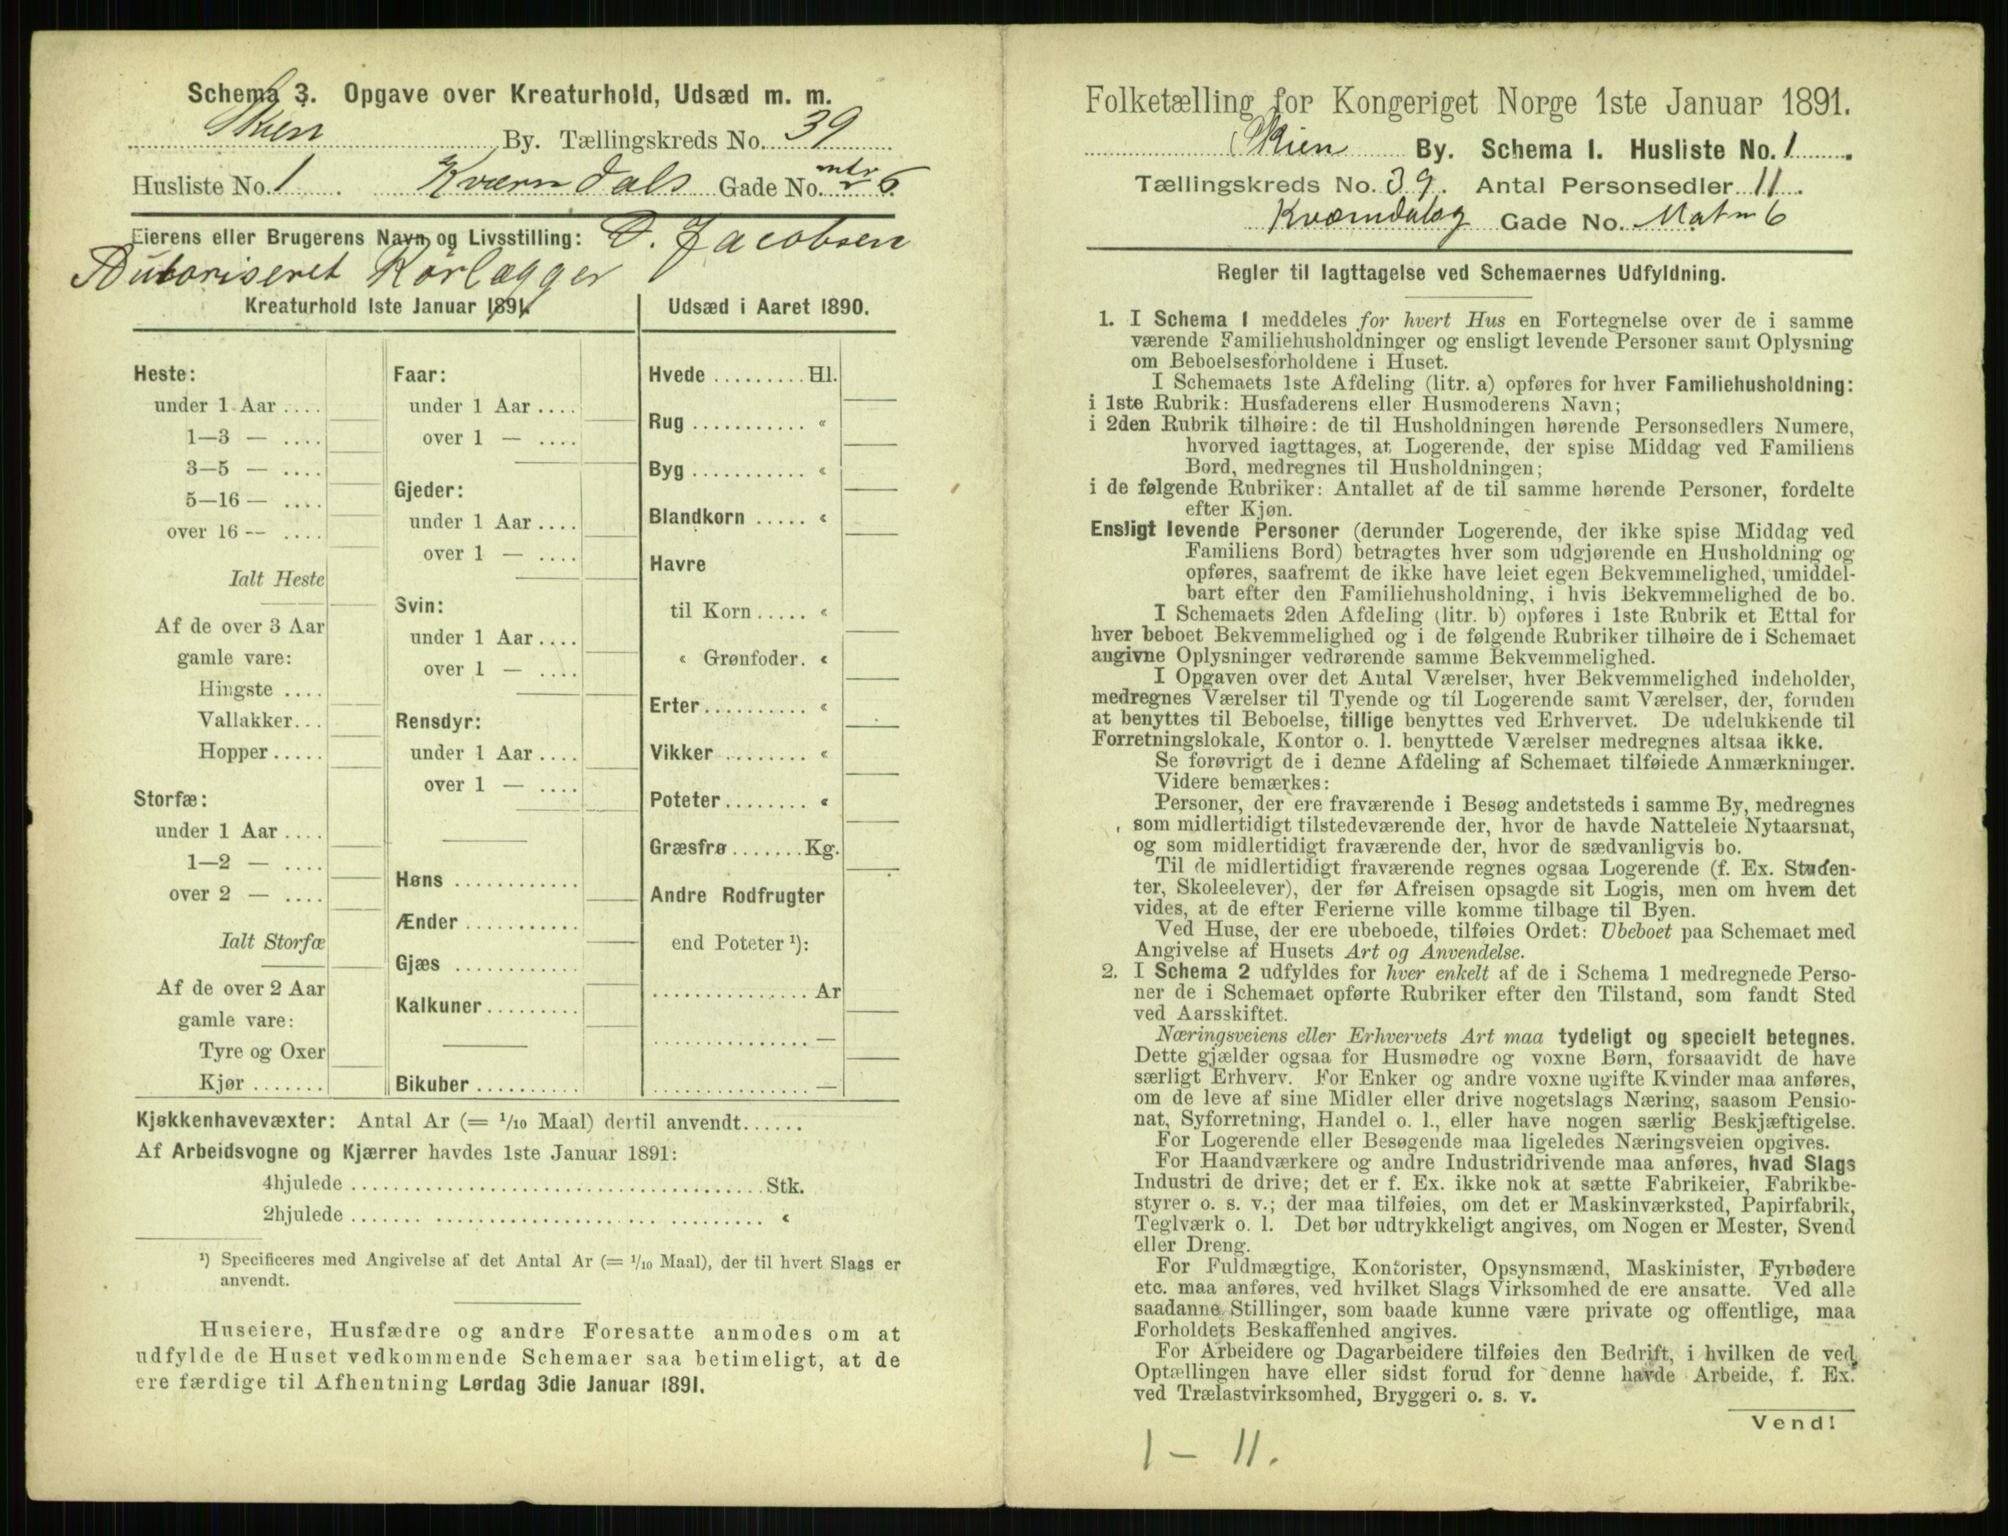 Schema 3. Opgave over Kreaturhold, Udsæd m. m.
Skien By. Tællingskreds No. 39
Husliste No. 1 Kværndals Gade No. mtr 6
Eierens eller Brugerens Navn og Livsstilling: O. Jacobsen
Autoriseret Rörlægger
Kreaturhold 1ste Januar 1891.
Heste:
under 1 Aar ....
1—3 — ....
3—5 — ....
5—16 — ....
over 16 — ....
Ialt Heste
Af de over 3 Aar
gamle vare:
Hingste ....
Vallakker...
Hopper .....
Storfæ:
under 1 Aar ....
1—2 — ....
over 2 — ....
Ialt Storfæ
Af de over 2 Aar
gamle vare:
Tyre og Oxer
Kjør .......
Faar:
under 1 Aar ....
over 1 — ....
Gjeder:
under 1 Aar ....
over 1 — ....
Svin:
under 1 Aar ....
over 1 — ....
Rensdyr:
under 1 Aar ....
over 1 — ....
Høns ............
Ænder ...........
Gjæs ............
Kalkuner .........
Bikuber ..........
Udsæd i Aaret 1890.
Hvede ......... Hl.
Rug ........... «
Byg ........... «
Blandkorn ..... «
Havre
til Korn ..... «
« Grønfoder. «
Erter.......... «
Vikker ........ «
Poteter ........ «
Græsfrø ....... Kg.
Andre Rodfrugter
end Poteter ¹):
............... Ar
............... —
............... —
Kjøkkenhavevæxter: Antal Ar (= 1/10 Maal) dertil anvendt......
Af Arbeidsvogne og Kjærrer havdes 1ste Januar 1891:
4hjulede ....................................... Stk.
2hjulede ....................................... «
¹) Specificeres med Angivelse af det Antal Ar (= 1/10 Maal), der til hvert Slags er
anvendt.
Huseiere, Husfædre og andre Foresatte anmodes om at
udfylde de Huset vedkommende Schemaer saa betimeligt, at de
ere færdige til Afhentning Lørdag 3die Januar 1891.
Folketælling for Kongeriget Norge 1ste Januar 1891.
Skien By. Schema 1. Husliste No. 1
Tællingskreds No. 39. Antal Personsedler 11
Kværndalsg Gade No. Mat n 6
Regler til Iagttagelse ved Schemaernes Udfyldning.
1. I Schema 1 meddeles for hvert Hus en Fortegnelse over de i samme
værende Familiehusholdninger og ensligt levende Personer samt Oplysning
om Beboelsesforholdene i Huset.
I Schemaets 1ste Afdeling (litr. a) opføres for hver Familiehusholdning:
i 1ste Rubrik: Husfaderens eller Husmoderens Navn;
i 2den Rubrik tilhøire: de til Husholdningen hørende Personsedlers Numere,
hvorved iagttages, at Logerende, der spise Middag ved Familiens
Bord, medregnes til Husholdningen;
i de følgende Rubriker: Antallet af de til samme hørende Personer, fordelte
efter Kjøn.
Ensligt levende Personer (derunder Logerende, der ikke spise Middag ved
Familiens Bord) betragtes hver som udgjørende en Husholdning og
opføres, saafremt de ikke have leiet egen Bekvemmelighed, umiddel-
bart efter den Familiehusholdning, i hvis Bekvemmelighed de bo.
I Schemaets 2den Afdeling (litr. b) opføres i 1ste Rubrik et Ettal for
hver beboet Bekvemmelighed og i de følgende Rubriker tilhøire de i Schemaet
angivne Oplysninger vedrørende samme Bekvemmelighed.
I Opgaven over det Antal Værelser, hver Bekvemmelighed indeholder,
medregnes Værelser til Tyende og til Logerende samt Værelser, der, foruden
at benyttes til Beboelse, tillige benyttes ved Erhvervet. De udelukkende til
Forretningslokale, Kontor o. l. benyttede Værelser medregnes altsaa ikke.
Se forøvrigt de i denne Afdeling af Schemaet tilføiede Anmærkninger.
Videre bemærkes:
Personer, der ere fraværende i Besøg andetsteds i samme By, medregnes
som midlertidigt tilstedeværende der, hvor de havde Natteleie Nytaarsnat,
og som midlertidigt fraværende der, hvor de sædvanligvis bo.
Til de midlertidigt fraværende regnes ogsaa Logerende (f. Ex. Studen-
ter, Skoleelever), der før Afreisen opsagde sit Logis, men om hvem det
vides, at de efter Ferierne ville komme tilbage til Byen.
Ved Huse, der ere ubeboede, tilføies Ordet: Ubeboet paa Schemaet med
Angivelse af Husets Art og Anvendelse.
2. I Schema 2 udfyldes for hver enkelt af de i Schema 1 medregnede Perso-
ner de i Schemaet opførte Rubriker efter den Tilstand, som fandt Sted
ved Aarsskiftet.
Næringsveiens eller Erhvervets Art maa tydeligt og specielt betegnes.
Dette gjælder ogsaa for Husmødre og voxne Børn, forsaavidt de have
særligt Erhverv. For Enker og andre voxne ugifte Kvinder maa anføres,
om de leve af sine Midler eller drive nogetslags Næring, saasom Pensio-
nat, Syforretning, Handel o. l., eller have nogen særlig Beskjæftigelse.
For Logerende eller Besøgende maa ligeledes Næringsveien opgives.
For Haandværkere og andre Industridrivende maa anføres, hvad Slags
Industri de drive; det er f. Ex. ikke nok at sætte Fabrikeier, Fabrikbe-
styrer o. s. v.; der maa tilføies, om det er Maskinværksted, Papirfabrik,
Teglværk o. l. Det bør udtrykkeligt angives, om Nogen er Mester, Svend
eller Dreng.
For Fuldmægtige, Kontorister, Opsynsmænd, Maskinister, Fyrbødere
etc. maa anføres, ved hvilket Slags Virksomhed de ere ansatte. Ved alle
saadanne Stillinger, som baade kunne være private og offentlige, maa
Forholdets Beskaffenhed angives.
For Arbeidere og Dagarbeidere tilføies den Bedrift, i hvilken de ved
Optællingen have eller sidst forud for denne havde Arbeide, f. Ex.
ved Trælastvirksomhed, Bryggeri o. s. v.
Vend!
1 – 11.